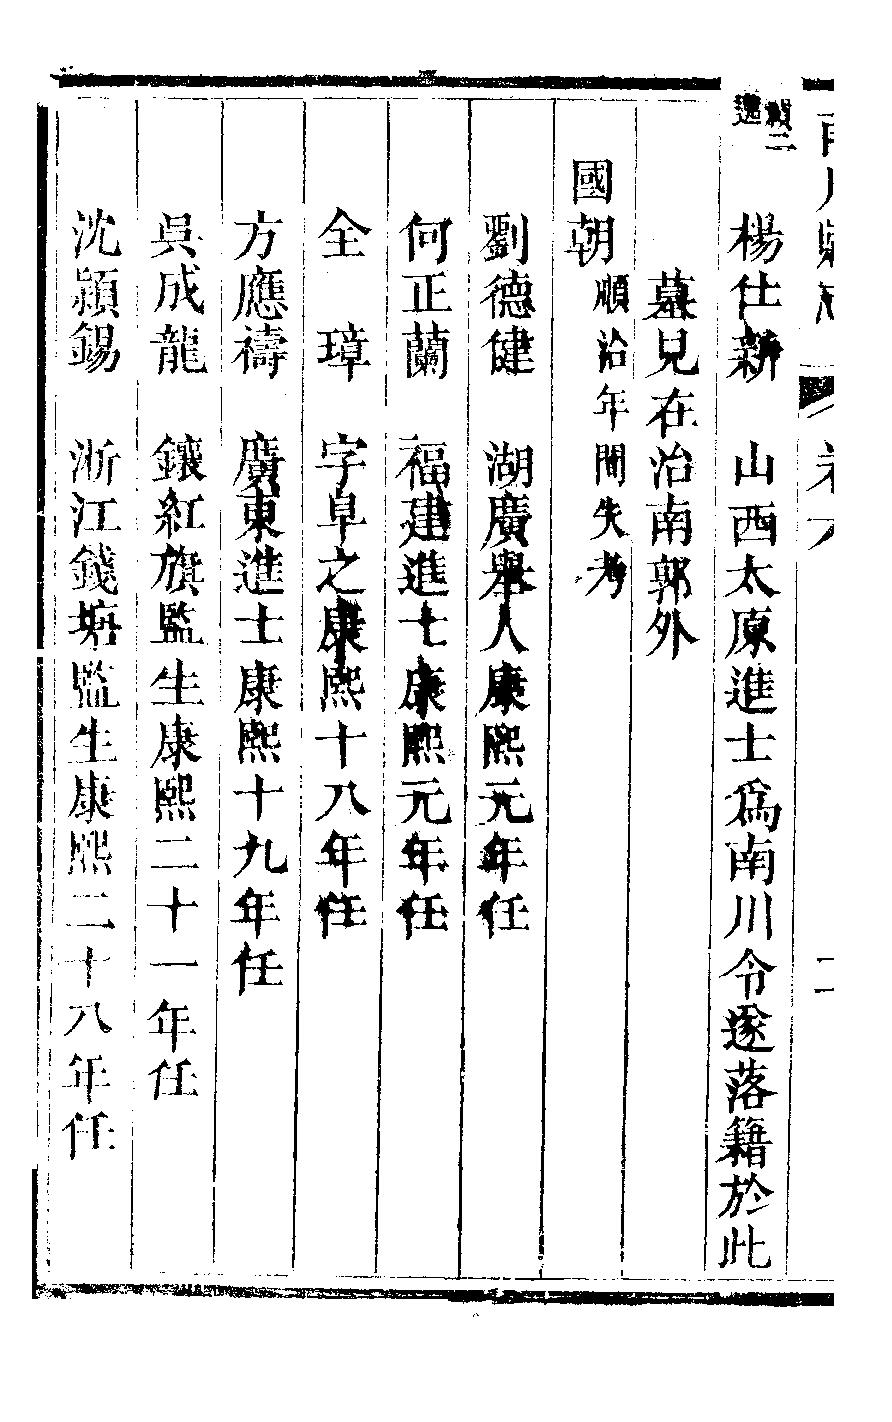 楊仕新　山西太原進士爲南川令遂落籍於此
墓見在治南郭外
國朝順治年間失考
劉德健　湖廣舉人康熙元年任
何正蘭　福建進士康熙元年任
全　璋　字阜之康熙十八年任
方應禱　廣東進士康熙十九年任
吳成龍　鑲紅旗監生康熙二十一年任
沈穎錫　浙江錢塘監生康熙二十八年任